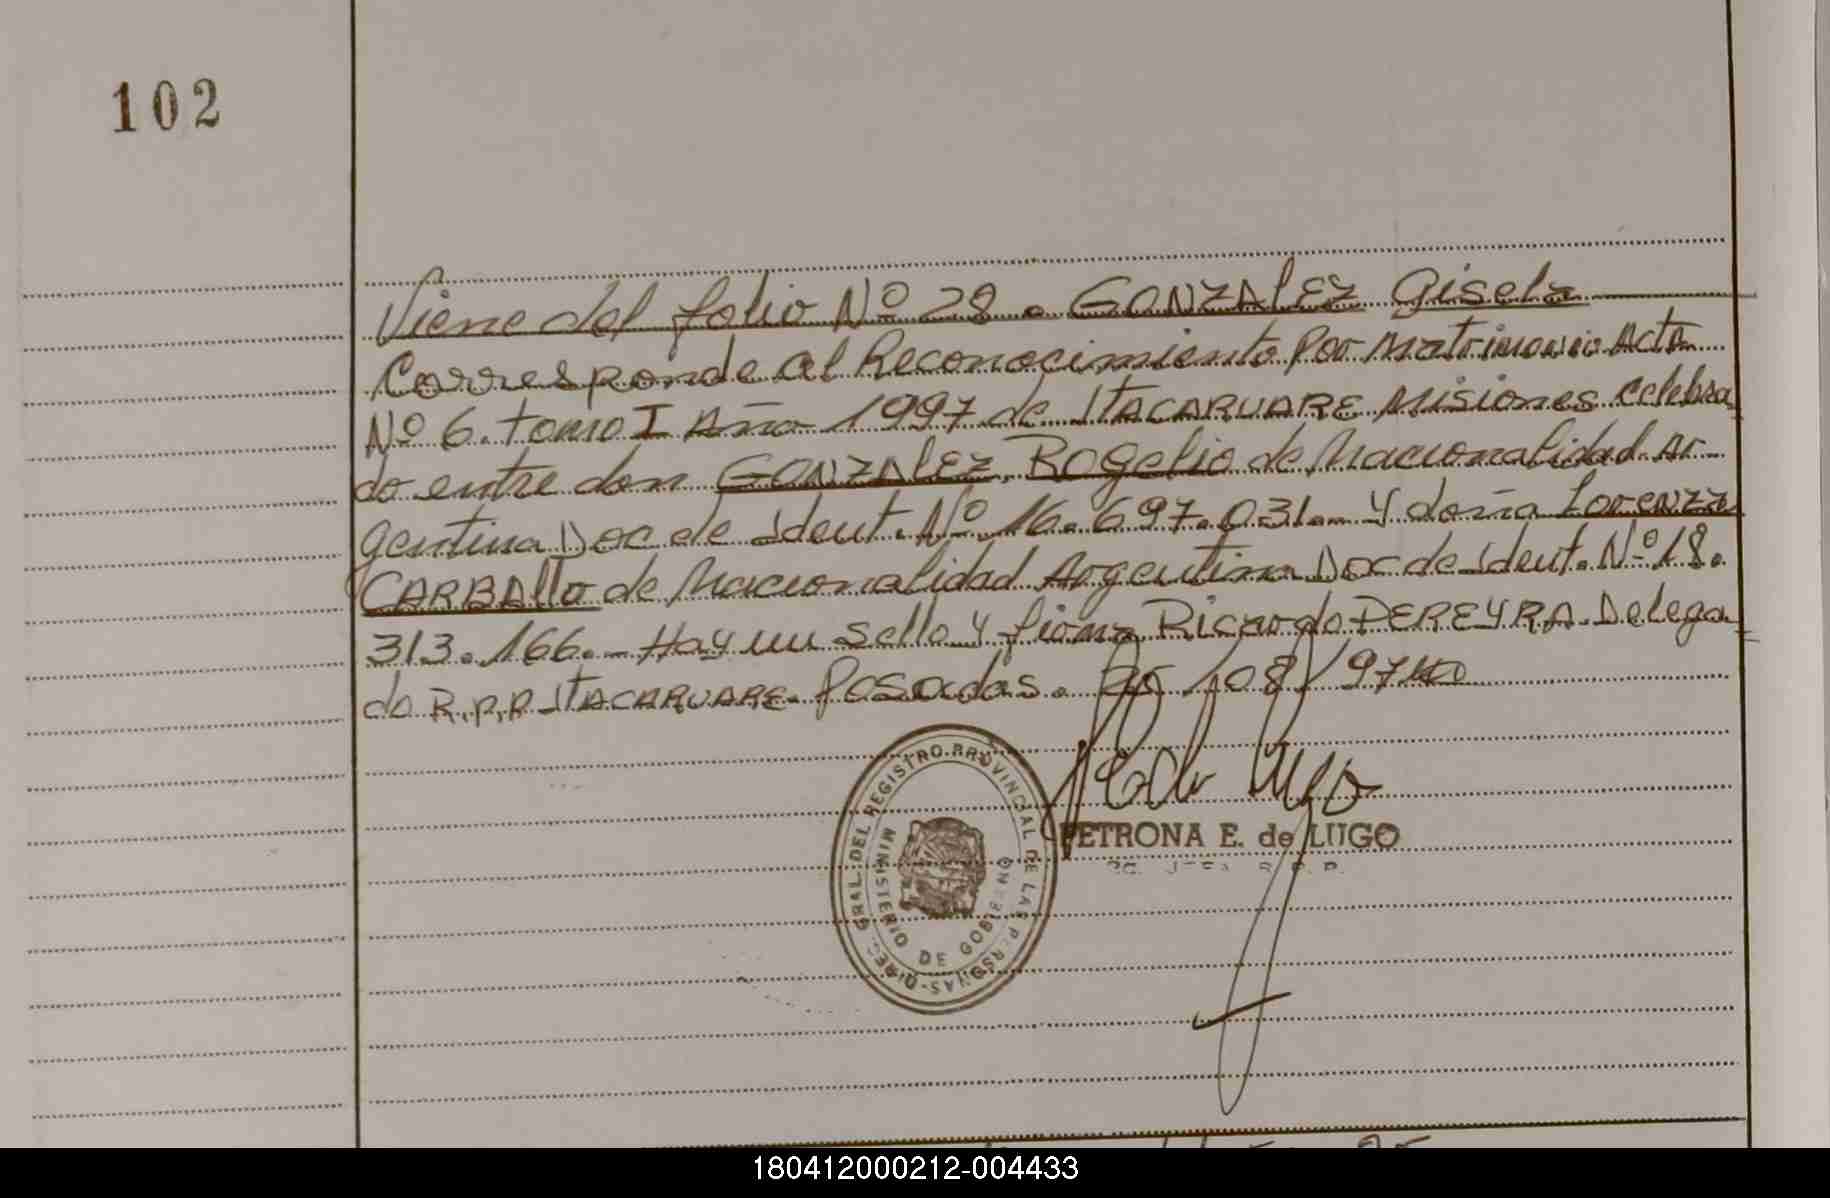 102
Viene del folio Nº 28. GONZALEZ Gisela
Corresponde al Reconocimiento por Matrimonio Acta
Nº 6. tomo I Año 1997 de ITACARUARE Misiones celebra
do entre don GONZALEZ, Rogelio de Nacionalidad Ar
gentina Doc de Ident. Nº 16.697.031.- y doña Lorenza
CARBALLO de Nacionalidad Argentina Doc de Ident. Nº 18.
313.166.- Hay un sello y firma Ricardo PEREYRA. Delega
do R.P.P. ITACARUARE. Posadas. /08/97
DIREC. GRAL. DEL REGISTRO PROVINCIAL DE LAS PERSONAS
MINISTERIO DE GOBIERNO
PETRONA E. de LUGO
180412000212-004433